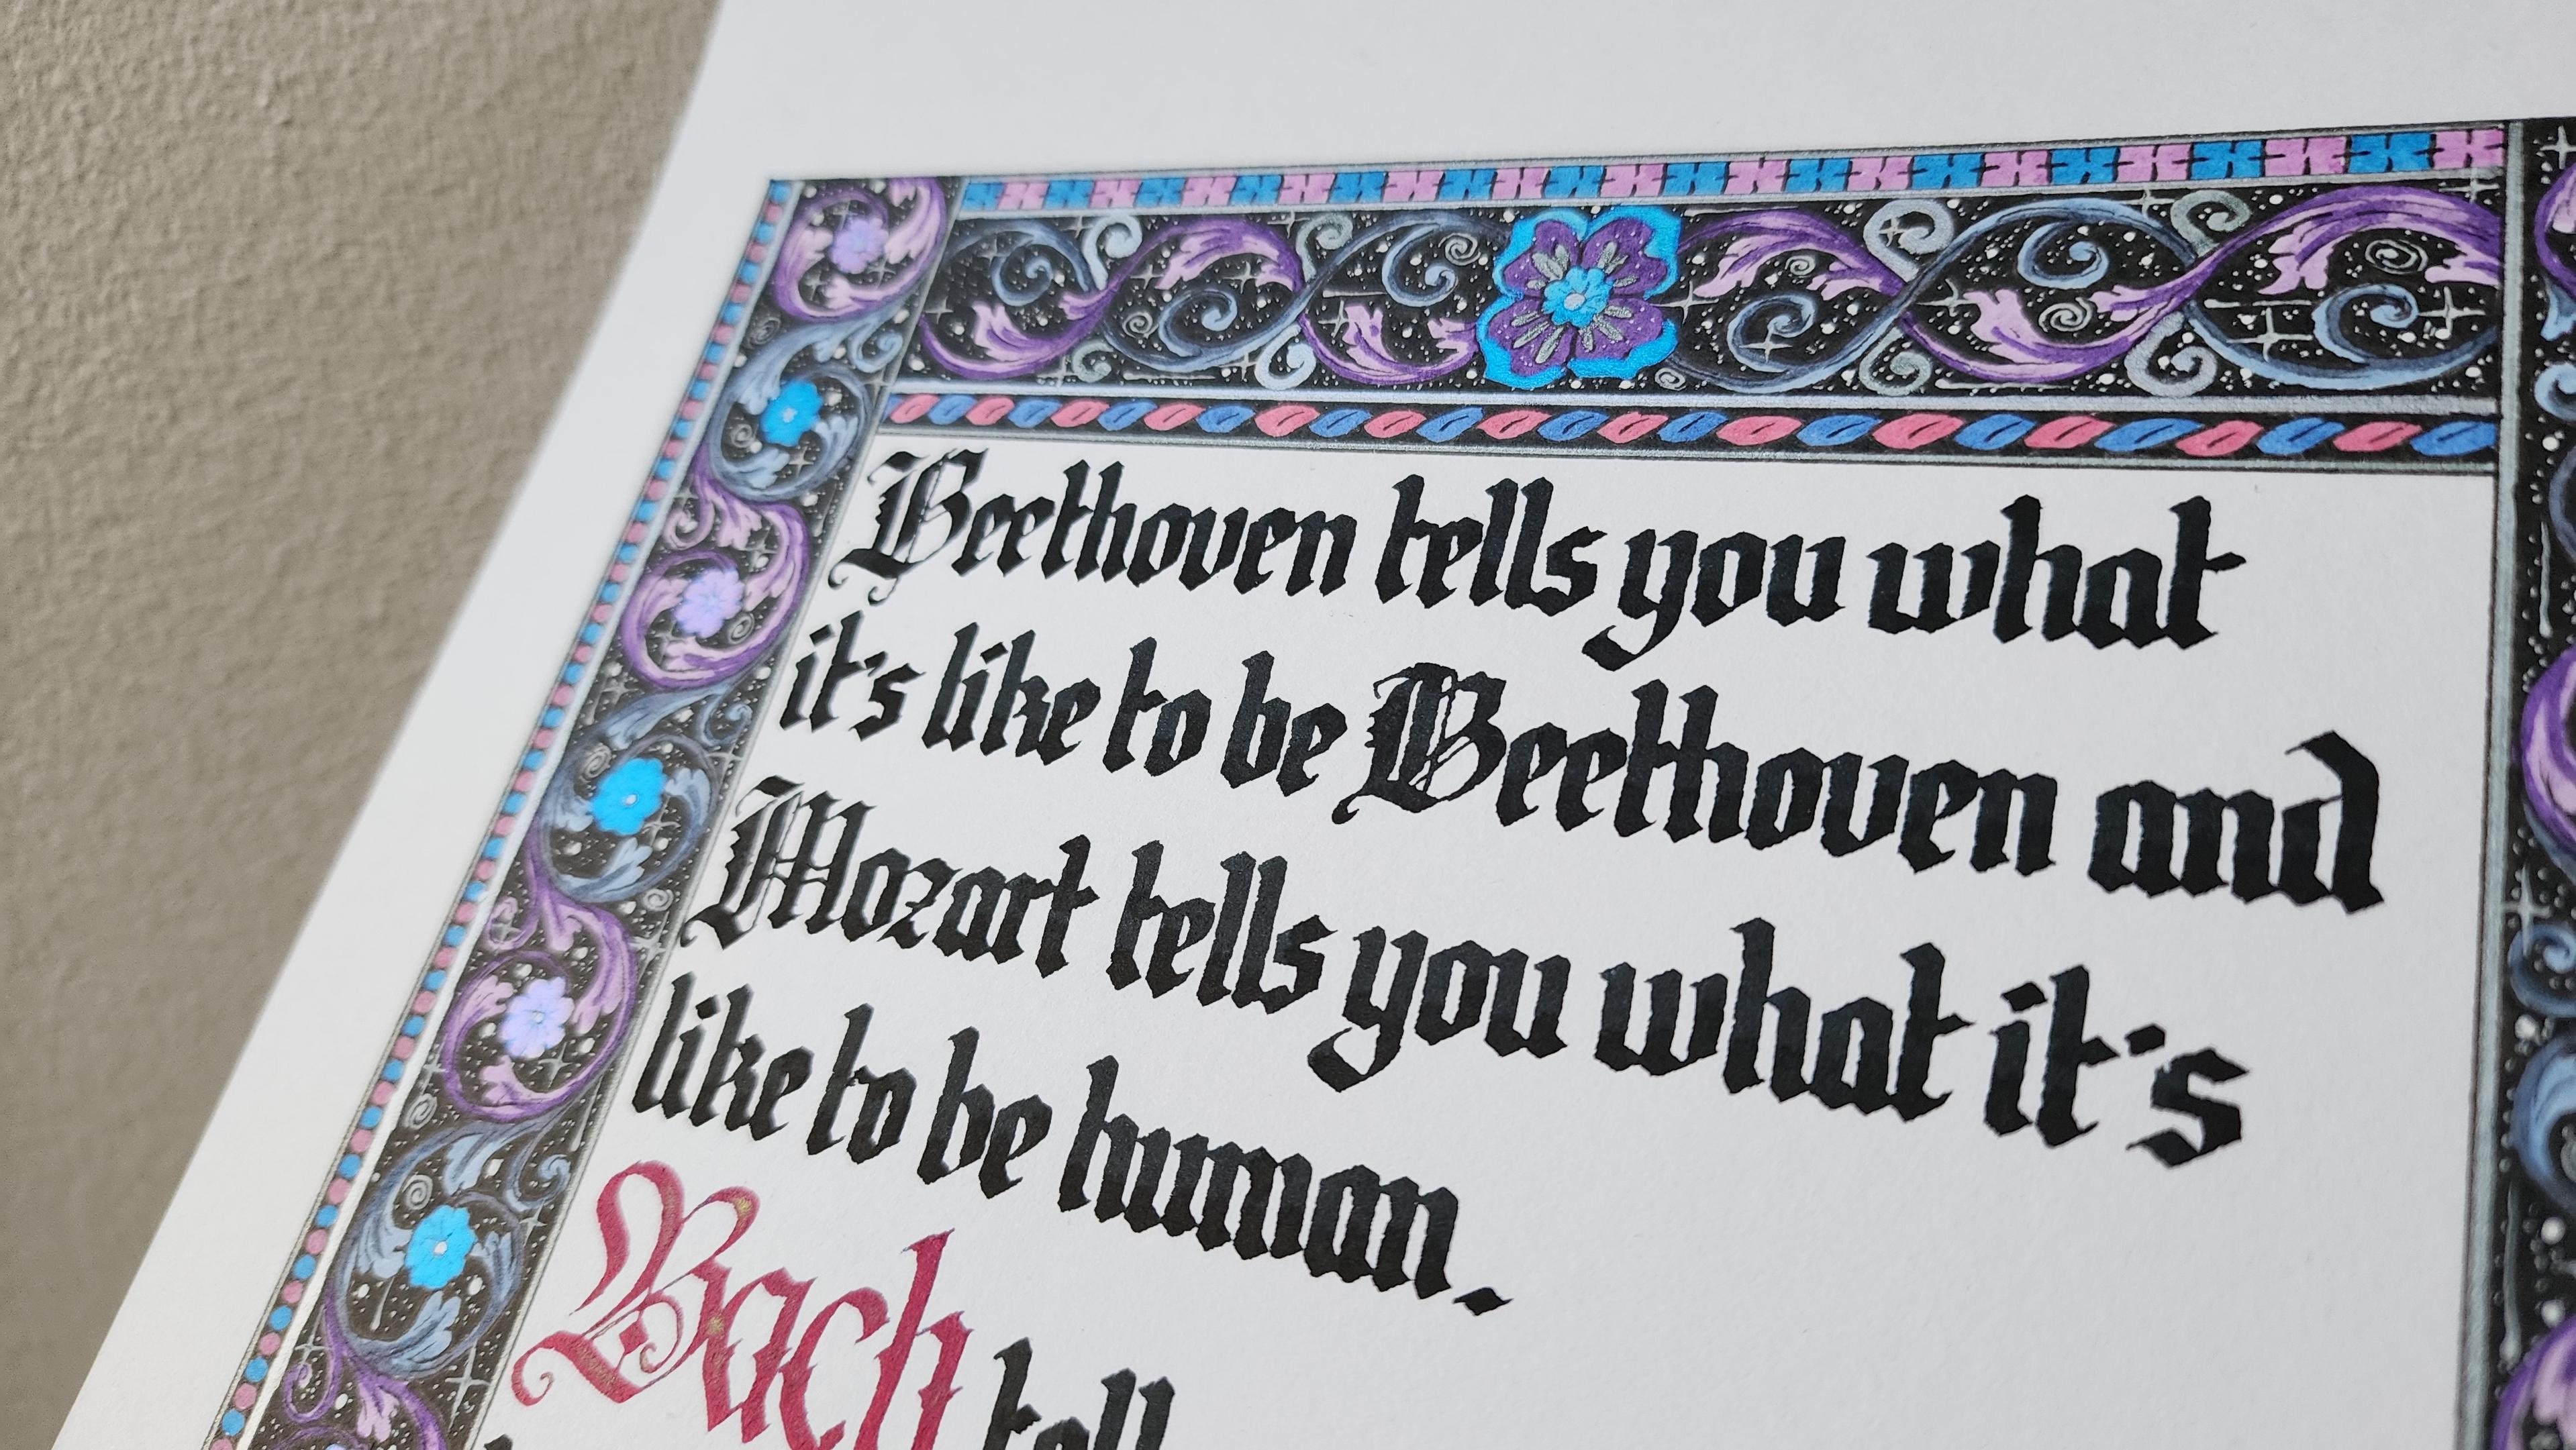 Beethoven tells you what
it's like to be Beethoven and
Mozart tells you what it's
like to be human.
Bach tell